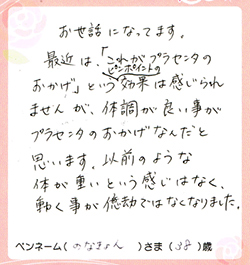 お世話になってます。
最近は、「これがプラセンタの
ピンポイントの
おかげ」という効果は感じられ
ませんが、体調が良い事が
プラセンタのおかげなんだと
思います。以前のような
体が重いという感じはなく、
動く事が億劫ではなくなりました。
ペンネーム(のなきょん)さま(38)歳